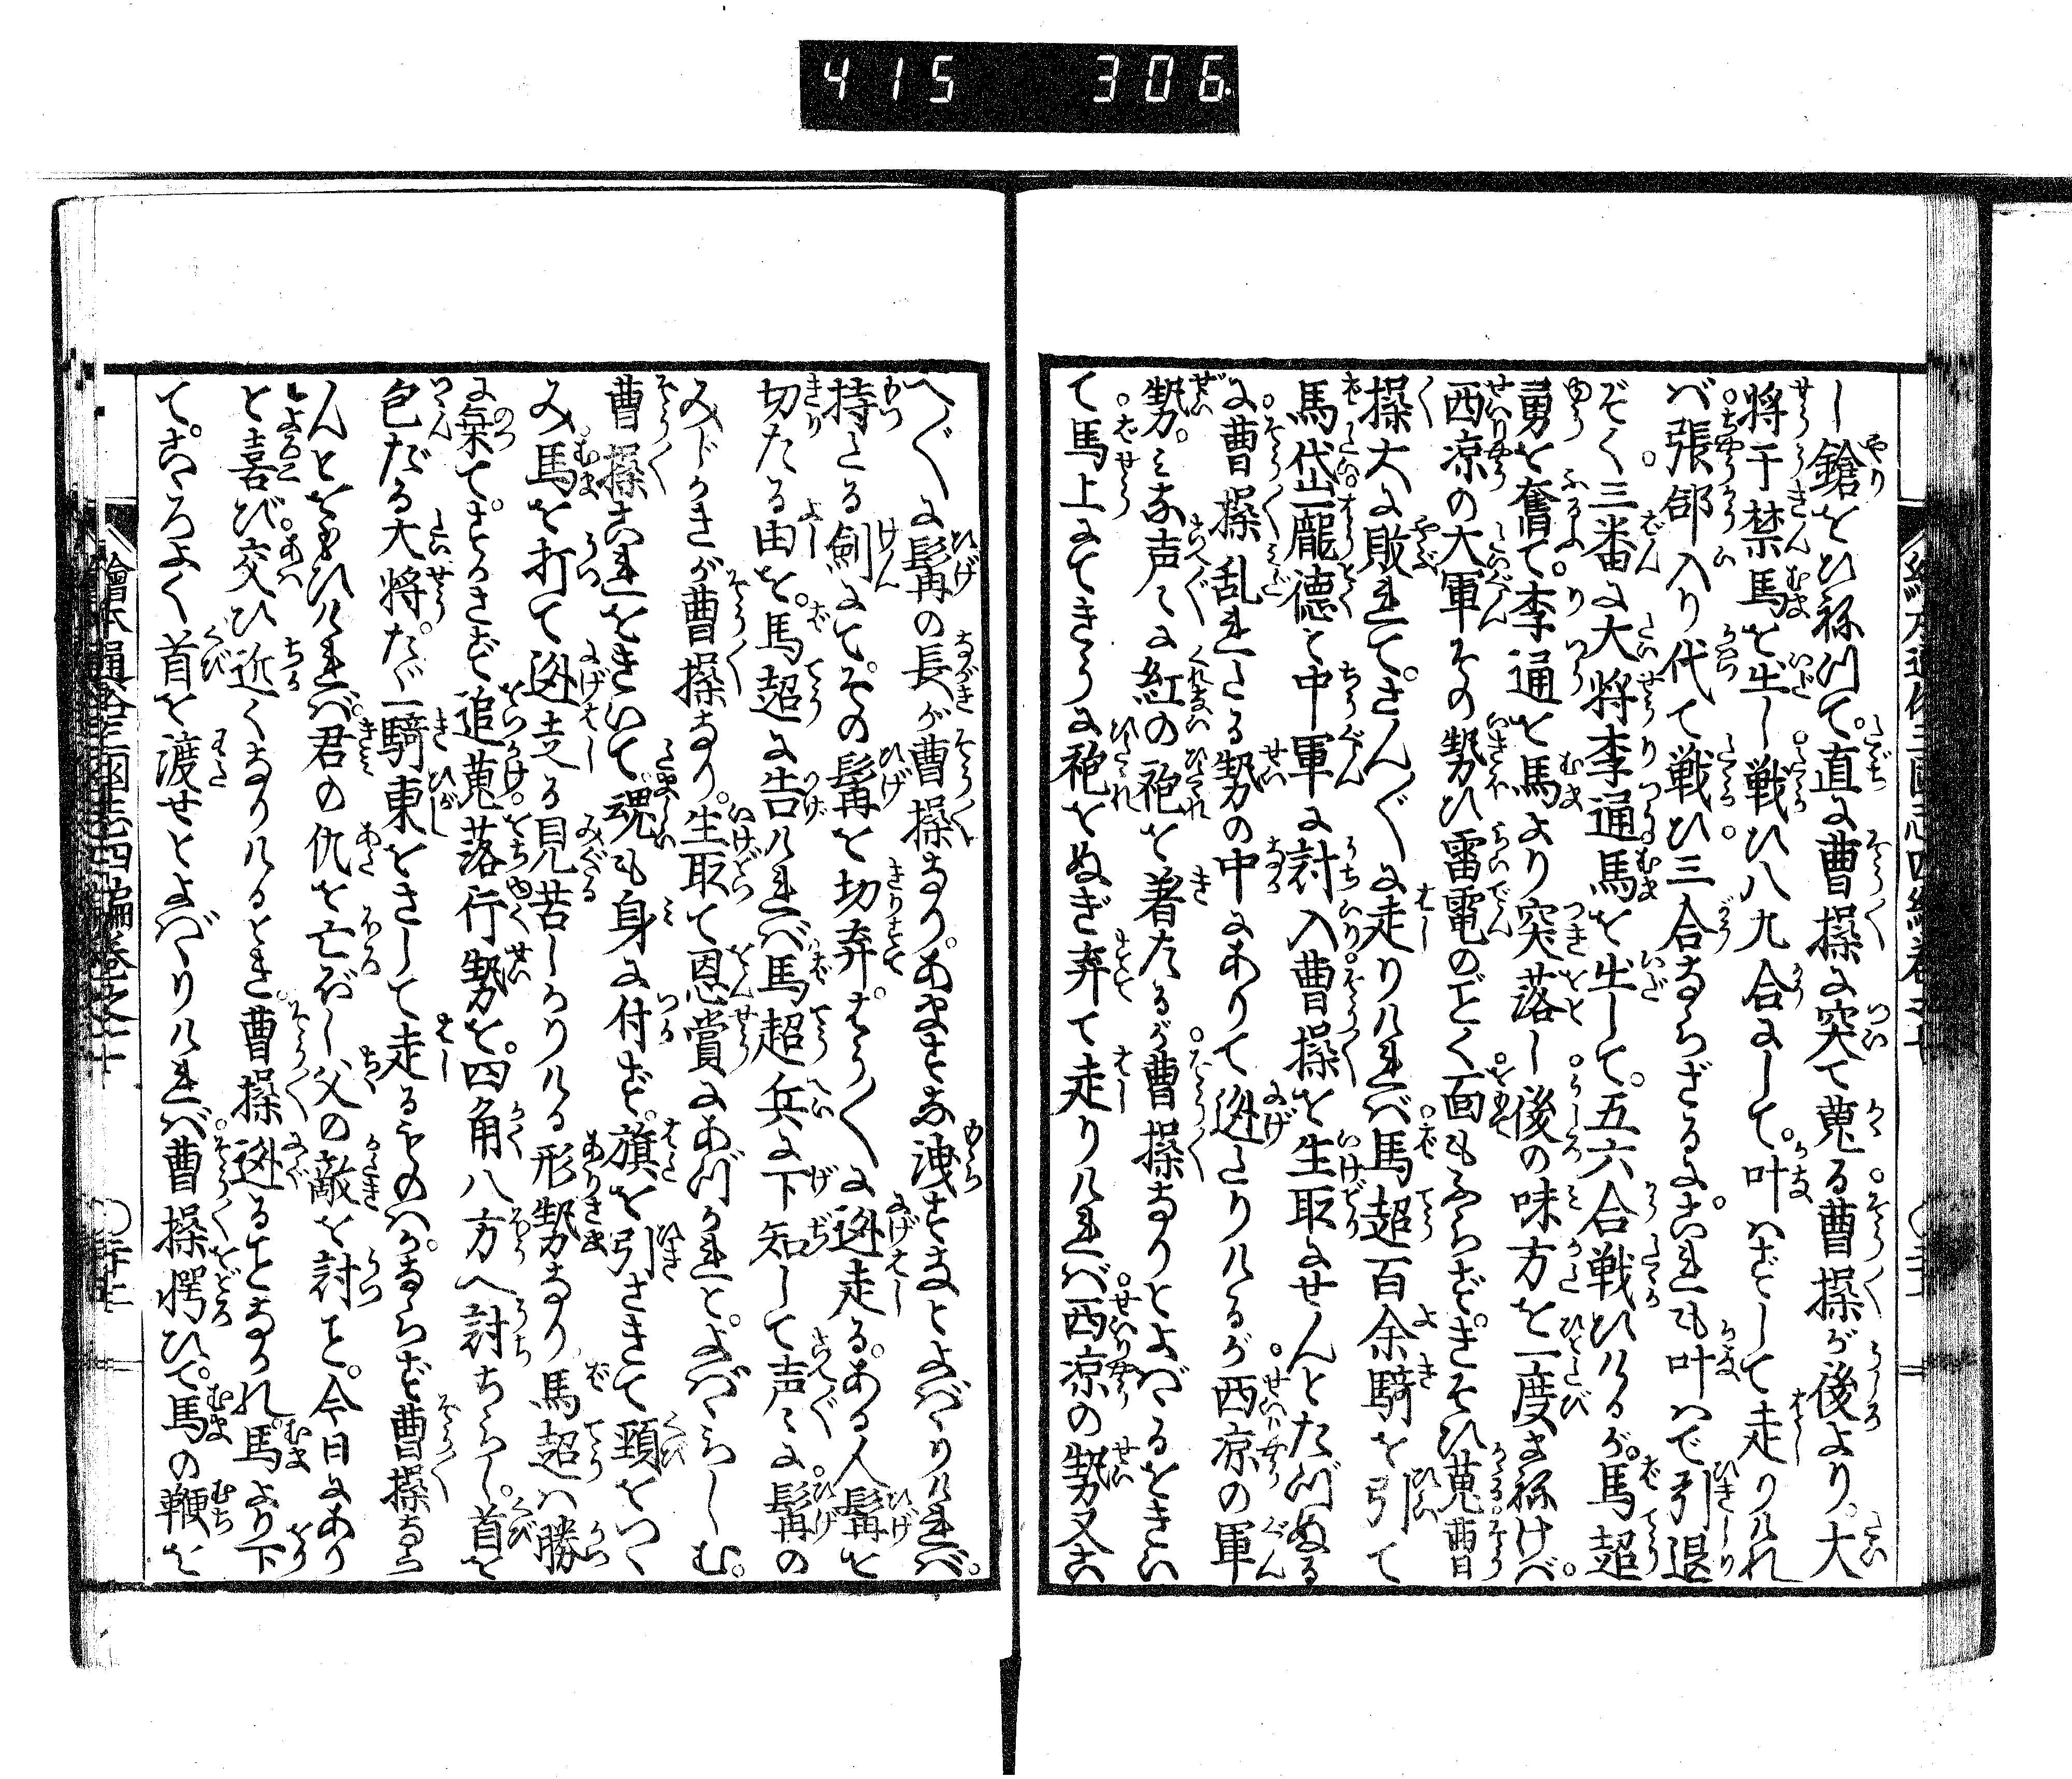 415 306
し鎗をひねつて。直に曹操に突て蒐る曹操が後より。大
将于禁馬を出し戦ひ八九合にして。叶はずして走りけれ
ば張郃入り代て戦ひ三合ならざるに。これも叶はで引退
ぞく。三番に大将李通馬を出して。五六合戦ひけるが。馬超
勇を奮て。李通を馬より突落し後の味方を一度さねけば。
西凉の大軍その勢ひ雷電のごとく面もふらず。きそひ蒐曹
操大に敗れて。さん〴〵に走りければ馬超百余騎を引て
馬岱龐徳と中軍に討入曹操を生取にせんとたづぬる
に曹操乱れたる勢の中にありて迯たりけるが西凉の軍
勢。みな声〻に紅の袍を着たるが曹操なりとよばるをきい
て馬上にてきうに袍をぬぎ弃て走りければ西凉の勢又こ
へ〴〵に髯の長が曹操なり。あやまとな洩すなとよばゝりければ。
持たる剣にて。その髯を切弃。はう〳〵に迯走る。ある人髯を
切たる由を。馬超に告ければ馬超兵に下知して声〻に髯の
みじかきが曹操なり。生取て恩賞にあづかれと。よばゝらしむ。
曹操これをきいて魂も身に付ず。旗を引さきて頸をつゝ
み馬を打て迯走る見苦しかりける形勢なり馬超は勝
に乗て。さゝさず追蒐落行勢を。四角八方へ討ちらし。首を
包だる大将たゞ一騎東をさして走るものハ。かならず曹操なら
んとをもひければ。君の仇を亡ぼし父の敵を討こと。今日にあり
と喜び交ひ近くなりけるとき。曹操迯ることなかれ馬より下
て。こゝろよく首を渡せとよばゝりければ曹操愕ひて。馬の鞭を
繪本通俗三國志四編巻之十